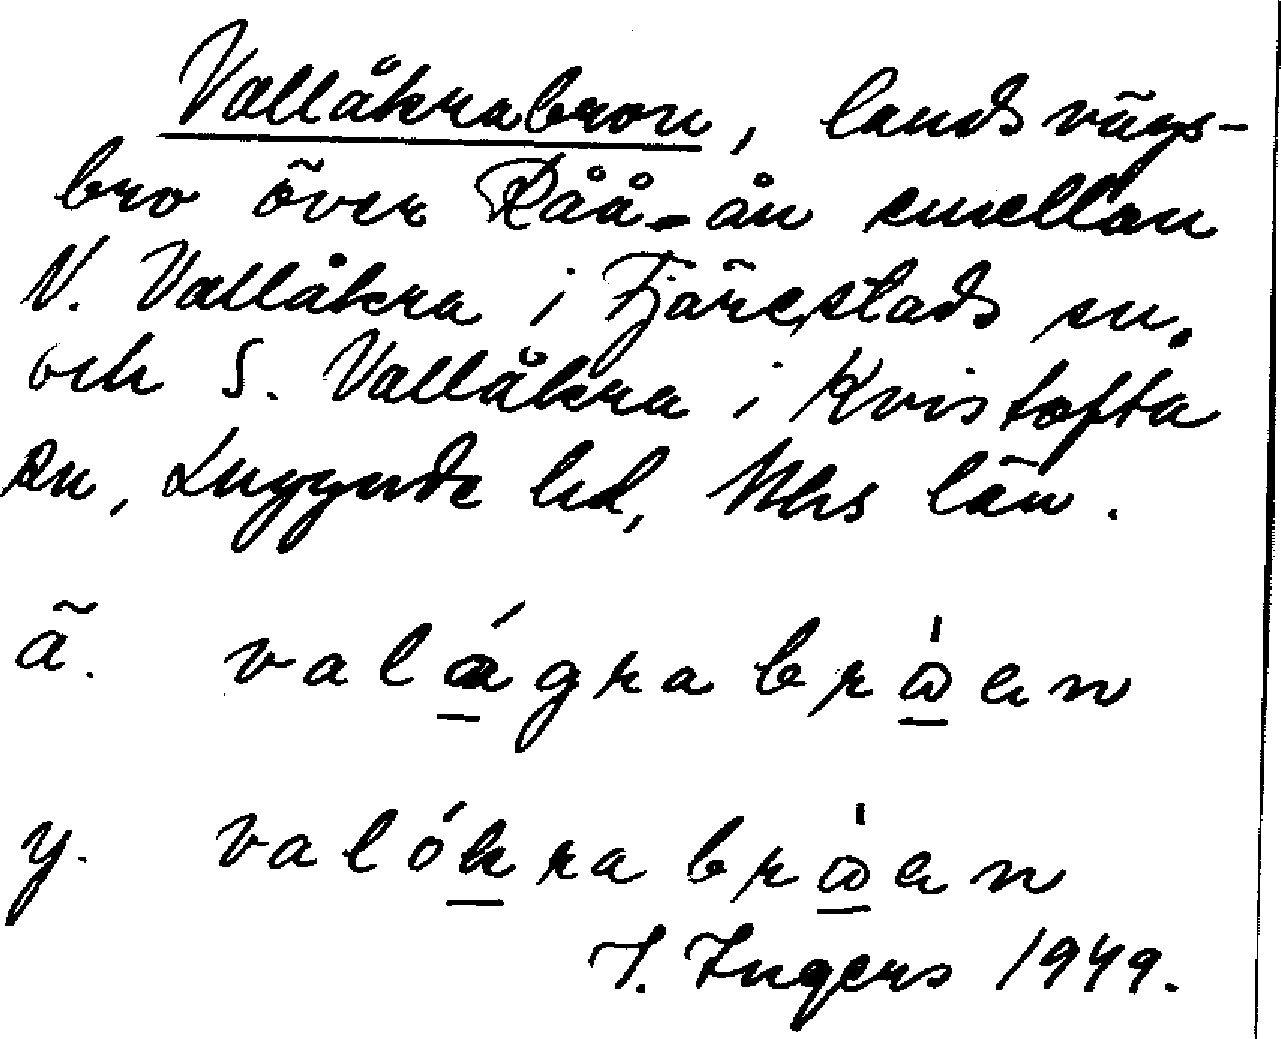 Vallåkrabron, landsvägs-
bro över Råå-ån emellan
N. Vallåkra i Fjärestads sn.
och S. Vallåkra i Kvistofta
sn, Luggude hd, Mhs län.
ä. valágrabrωen
y. valókrabrωen
I. Ingers 1949.